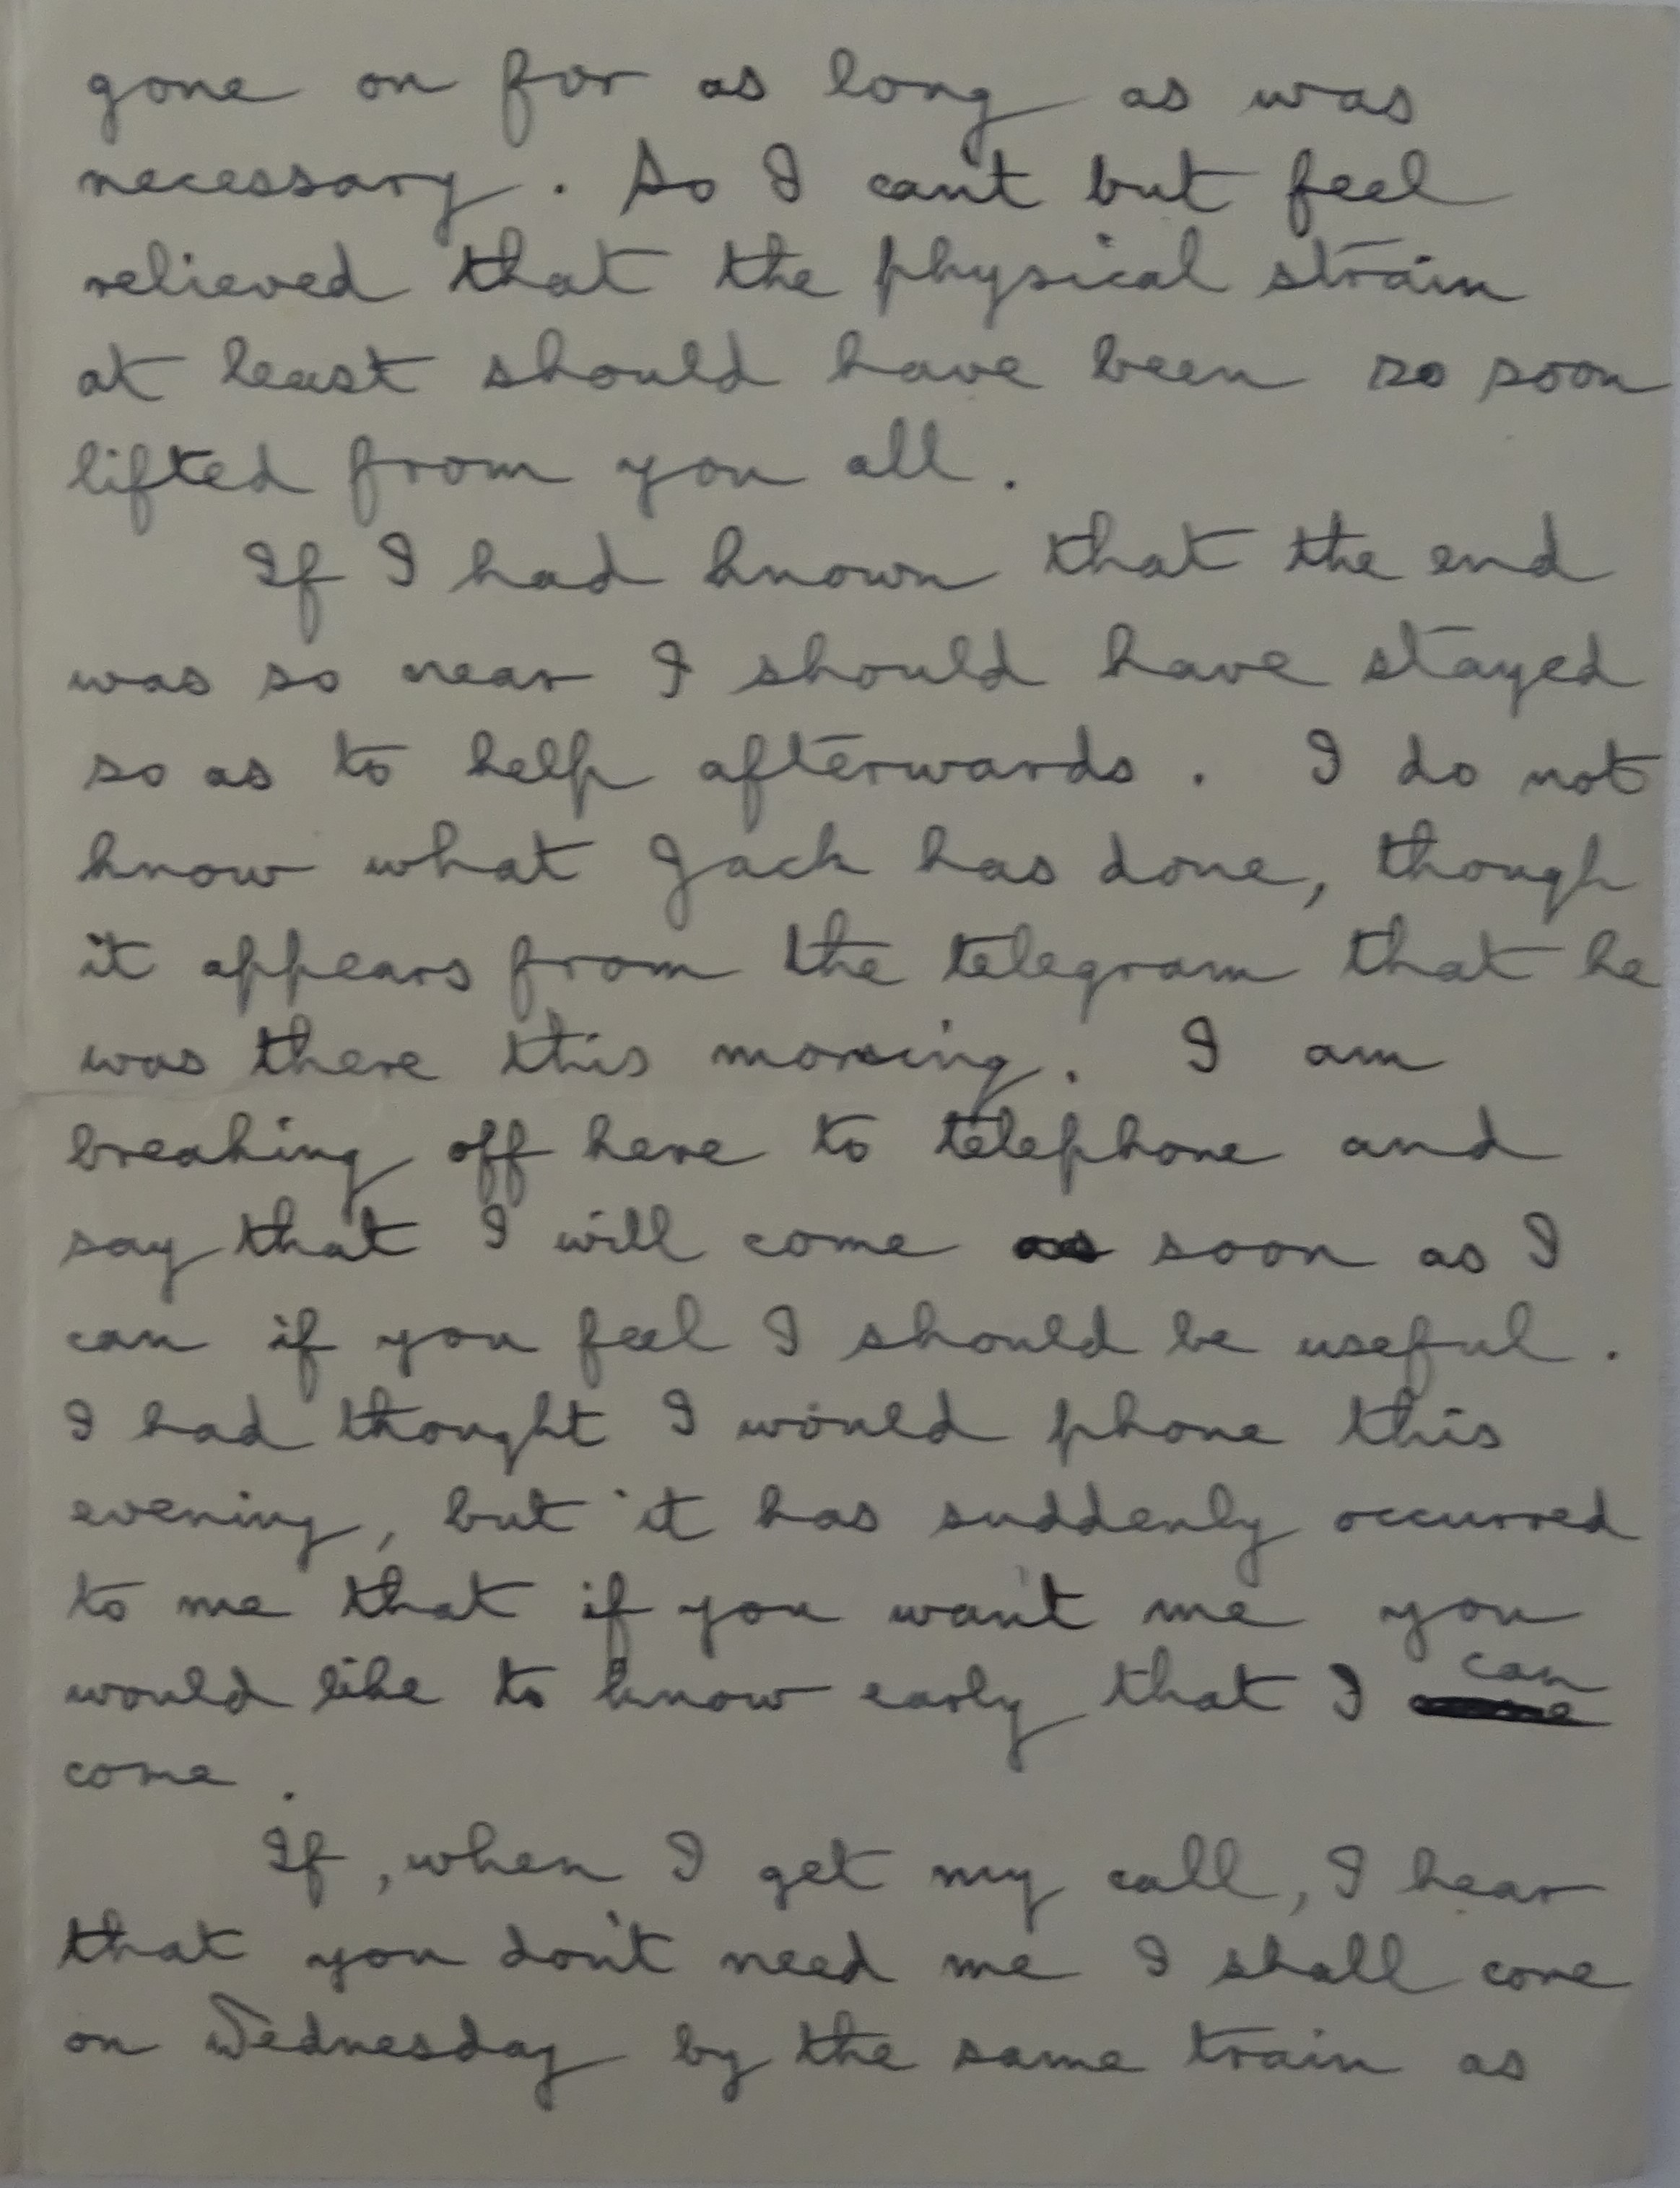 gone on for as long as was
necessary. So I can't but feel
relieved that the physical strain
at least should have been so soon
lifted from you all.
If I had known that the end
was so near I should have stayed
so as to help afterwards. I do not
know what Jack has done, though
it appears from the telegram that he
was there this morning. I am
breaking off here to telephone and
say that I will come as soon as I
can if you feel I should be useful.
I had thought I would phone this
evening, but it has suddenly occurred
to me that if you want me you
would like to know early that I can
come.
If, when I get my call, I hear
that you don't need me I shall come
on Wednesday by the same train as